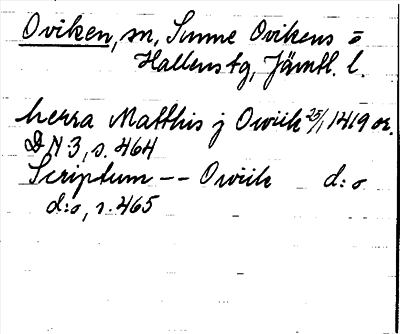 Oviken, sn, Sunne Ovikens o
Hallens tg, Jämtl. l.
herra Matthis j Owiik 25/1 1419 or.
DN 3, s. 464
Scriptum -- Owiik d:o
d:o, s. 465